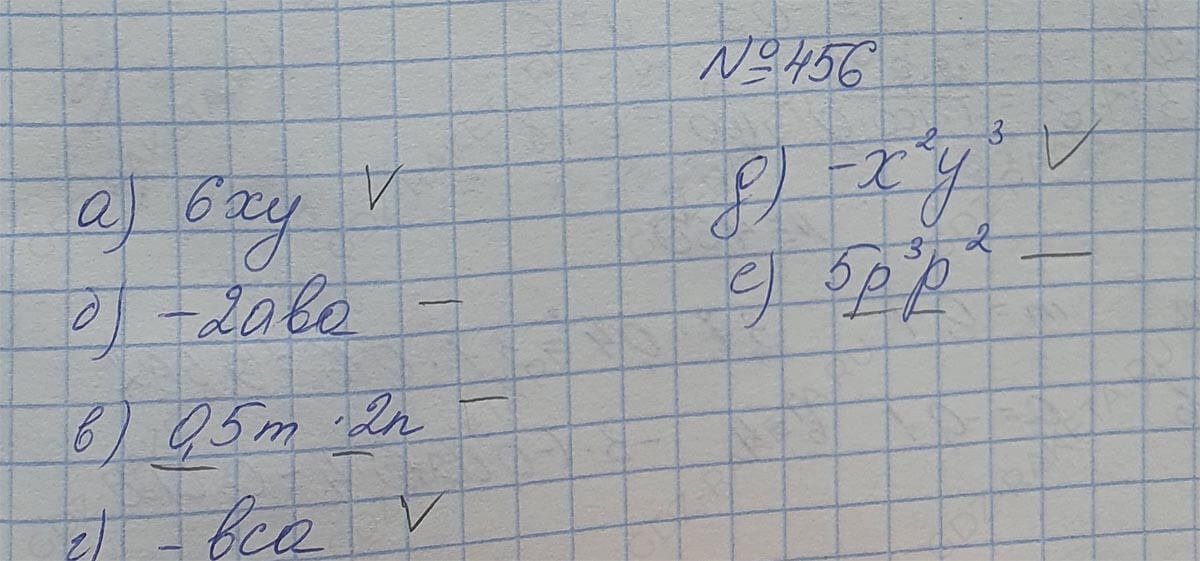 № 456
а) 6xy V
б) -2aba —
в) 0,5m · 2n —
г) -bca V
д) -x²y³ V
е) 5p³p² —